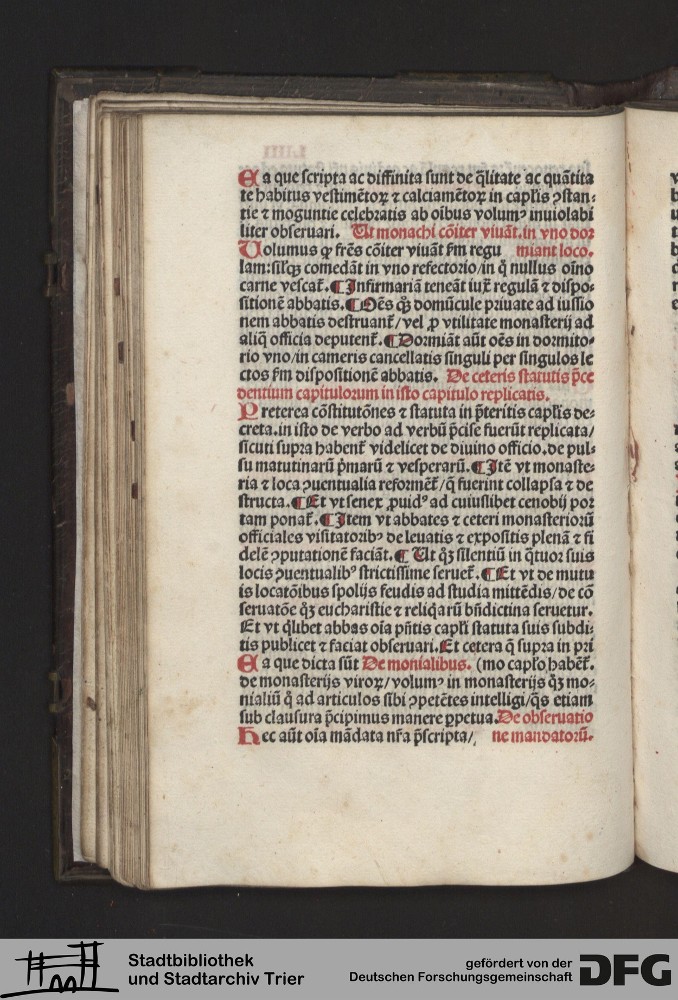 Ea que scripta ac diffinita sunt de q̃litate ac quãtita
te habitus vestimẽtoꝝ ⁊ calciamẽtoꝝ in capl̃is ꝯstan-
tie ⁊ moguntie celebratis ab oĩbus volumꝰ inuiolabi
liter obseruari. Ut monachi cõiter viuãt.in vno dor
Uolumus ꝙ fr̃es cõiter viuãt s̃m regu miant loco.
lam:sil̃qꝫ comedãt in vno refectorio/in q̃ nullus oĩno
carne vescat᷑.¶Infirmariã teneãt iux̃ regulã ⁊ dispo-
sitionẽ abbatis.¶Oẽs qꝫ domũcule priuate ad iussio
nem abbatis destruant᷑/vel ꝓ vtilitate monasterij ad
aliq̃ officia deputent᷑.¶Dormiãt aũt oẽs in dormito-
rio vno/in cameris cancellatis singuli per singulos le
ctos s̃m dispositionẽ abbatis. De ceteris statutis p̃ce
dentium capitulorum in isto capitulo replicatis.
Preterea cõstitutõnes ⁊ statuta in p̃teritis capl̃is de-
creta.in isto de verbo ad verbũ p̃cise fuerũt replicata/
sicuti supra habent᷑ videlicet de diuino officio.de pul-
su matutinarũ p̃marũ ⁊ vesperarũ.¶Itẽ vt monaste-
ria ⁊ loca ꝯuentualia reformẽt᷑/q̃ fuerint collapsa ⁊ de
structa.¶Et vt senex ꝓuidꝰ ad cuiuslibet cenobij por
tam ponat᷑.¶Item vt abbates ⁊ ceteri monasteriorũ
officiales visitatoribꝰ de leuatis ⁊ expositis plenã ⁊ fi
delẽ ꝯputationẽ faciãt.¶ Ut qꝫ silentiũ in q̃tuor suis
locis ꝯuentualibꝰ strictissime seruet᷑.¶Et vt de mutu
is locatõibus spolijs feudis ad studia mittẽdis/de cõ
seruatõe qꝫ eucharistie ⁊ reliq̃arũ bñdictina seruetur.
Et vt q̃libet abbas oĩa pñtis capl̃i statuta suis subdi-
tis publicet ⁊ faciat obseruari.Et cetera q̃ supra in pri
Ea que dicta sũt De monialibus. (mo capl̃o habẽt᷑.
de monasterijs viroꝝ/volumꝰ in monasterijs qꝫ mo-
nialiũ q̃ ad articulos sibi ꝯpetẽtes intelligi/q̃s etiam
sub clausura p̃cipimus manere ꝑpetua.De obseruatio
Hec aũt oĩa mãdata nr̃a p̃scripta/ ne mandatorũ.
Stadtbibliothek
und Stadtarchiv Trier
gefördert von der
Deutschen Forschungsgemeinschaft
DFG